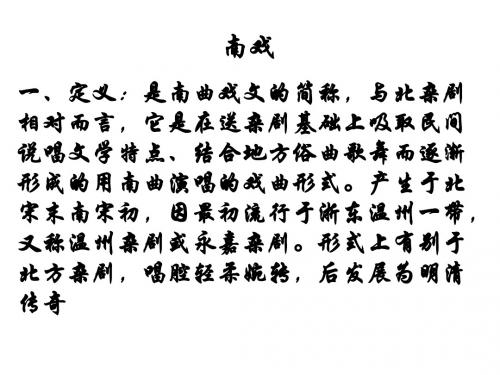 南戏
一、定义：是南曲戏文的简称，与北杂剧
相对而言，它是在送杂剧基础上吸取民间
说唱文学特点、结合地方俗曲歌舞而逐渐
形成的用南曲演唱的戏曲形式。产生于北
宋末南宋初，因最初流行于浙东温州一带，
又称温州杂剧或永嘉杂剧。形式上有别于
北方杂剧，唱腔轻柔婉转，后发展为明清
传奇